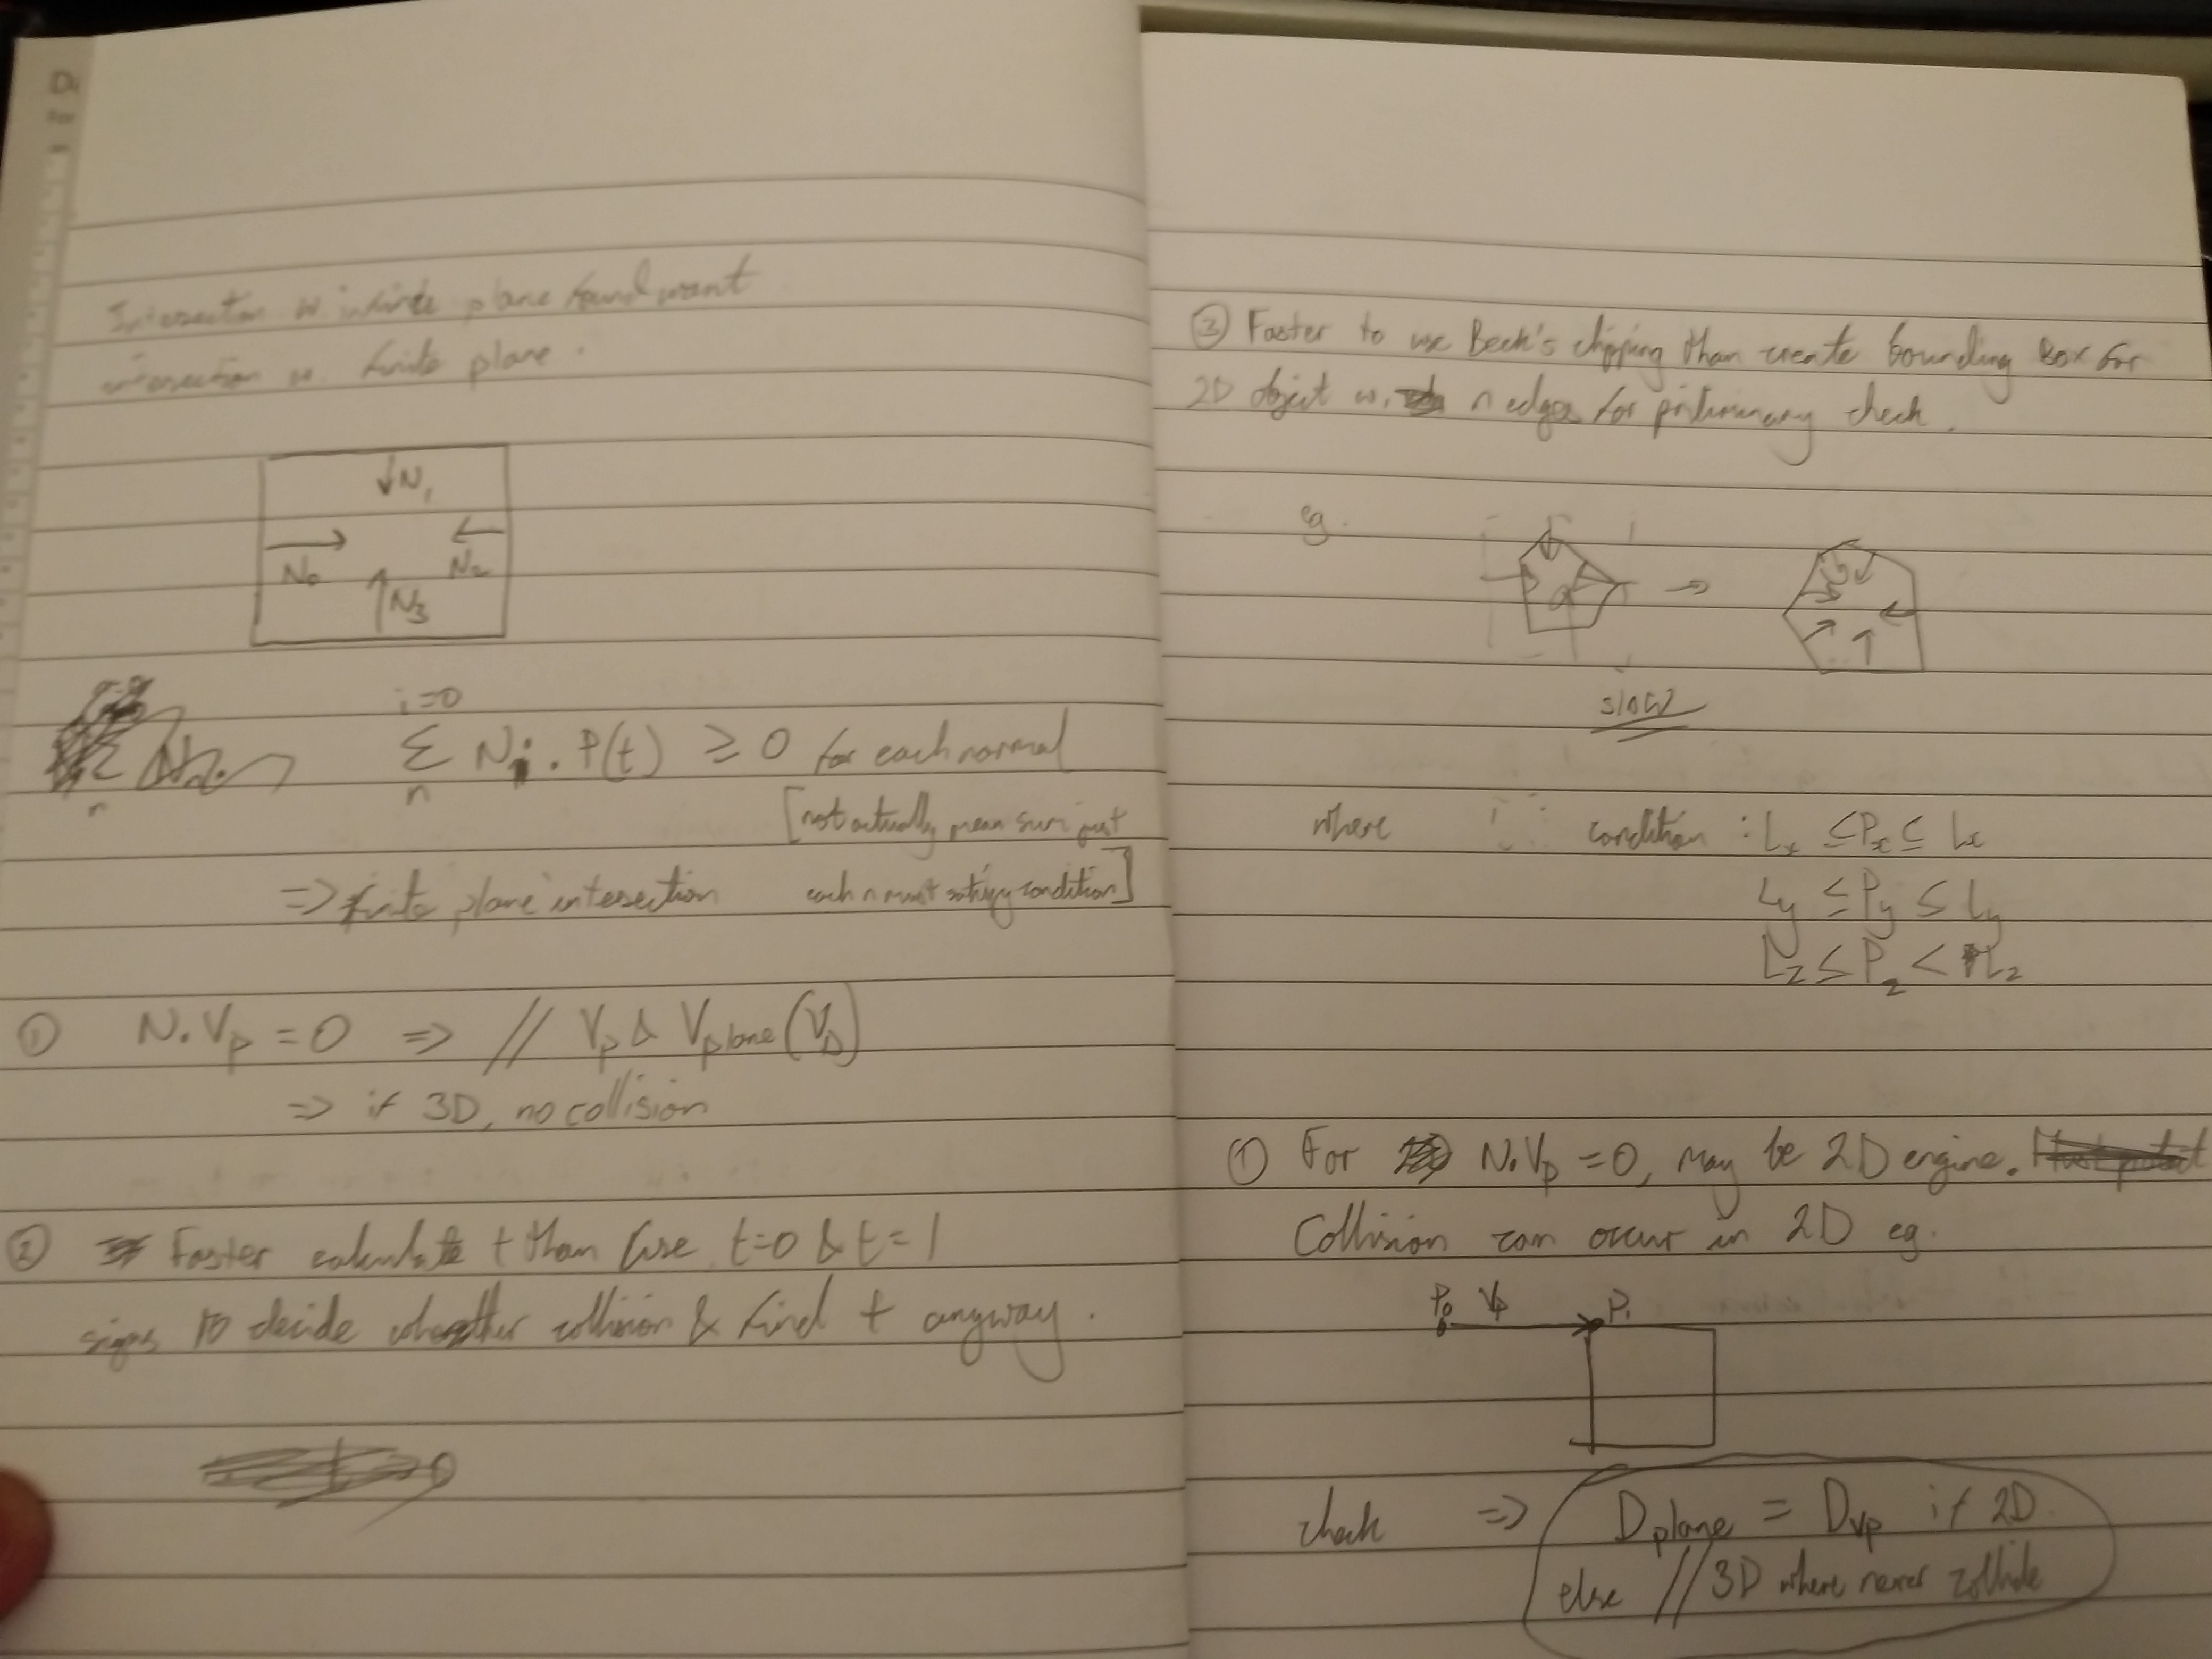 Intersection w. infinite plane found want
intersection w. finite plane.
↓N₁
N₀
N₂
N₃
i=0
Σ Nᵢ . P(t) ≥ 0 for each normal
n
[not actually mean sum just
=> finite plane intersection each n must satisfy condition]
① N.Vp = 0 => // Vp & Vplane (VD)
=> if 3D, no collision
② Faster calculate t than use t=0 & t=1
signs to decide whether collision & find t anyway.
③ Faster to use Beck's clipping than create bounding box for
2D object w. n edges for preliminary check.
eg.
slow
where condition : Lx ≤ Px ≤ Lx
Ly ≤ Py ≤ Ly
Lz ≤ Pz < Lz
① For N.Vp = 0, may be 2D engine.
Collision can occur in 2D eg.
P₀ Vp P₁
check => Dplane = Dvp if 2D
else // 3D where never collide